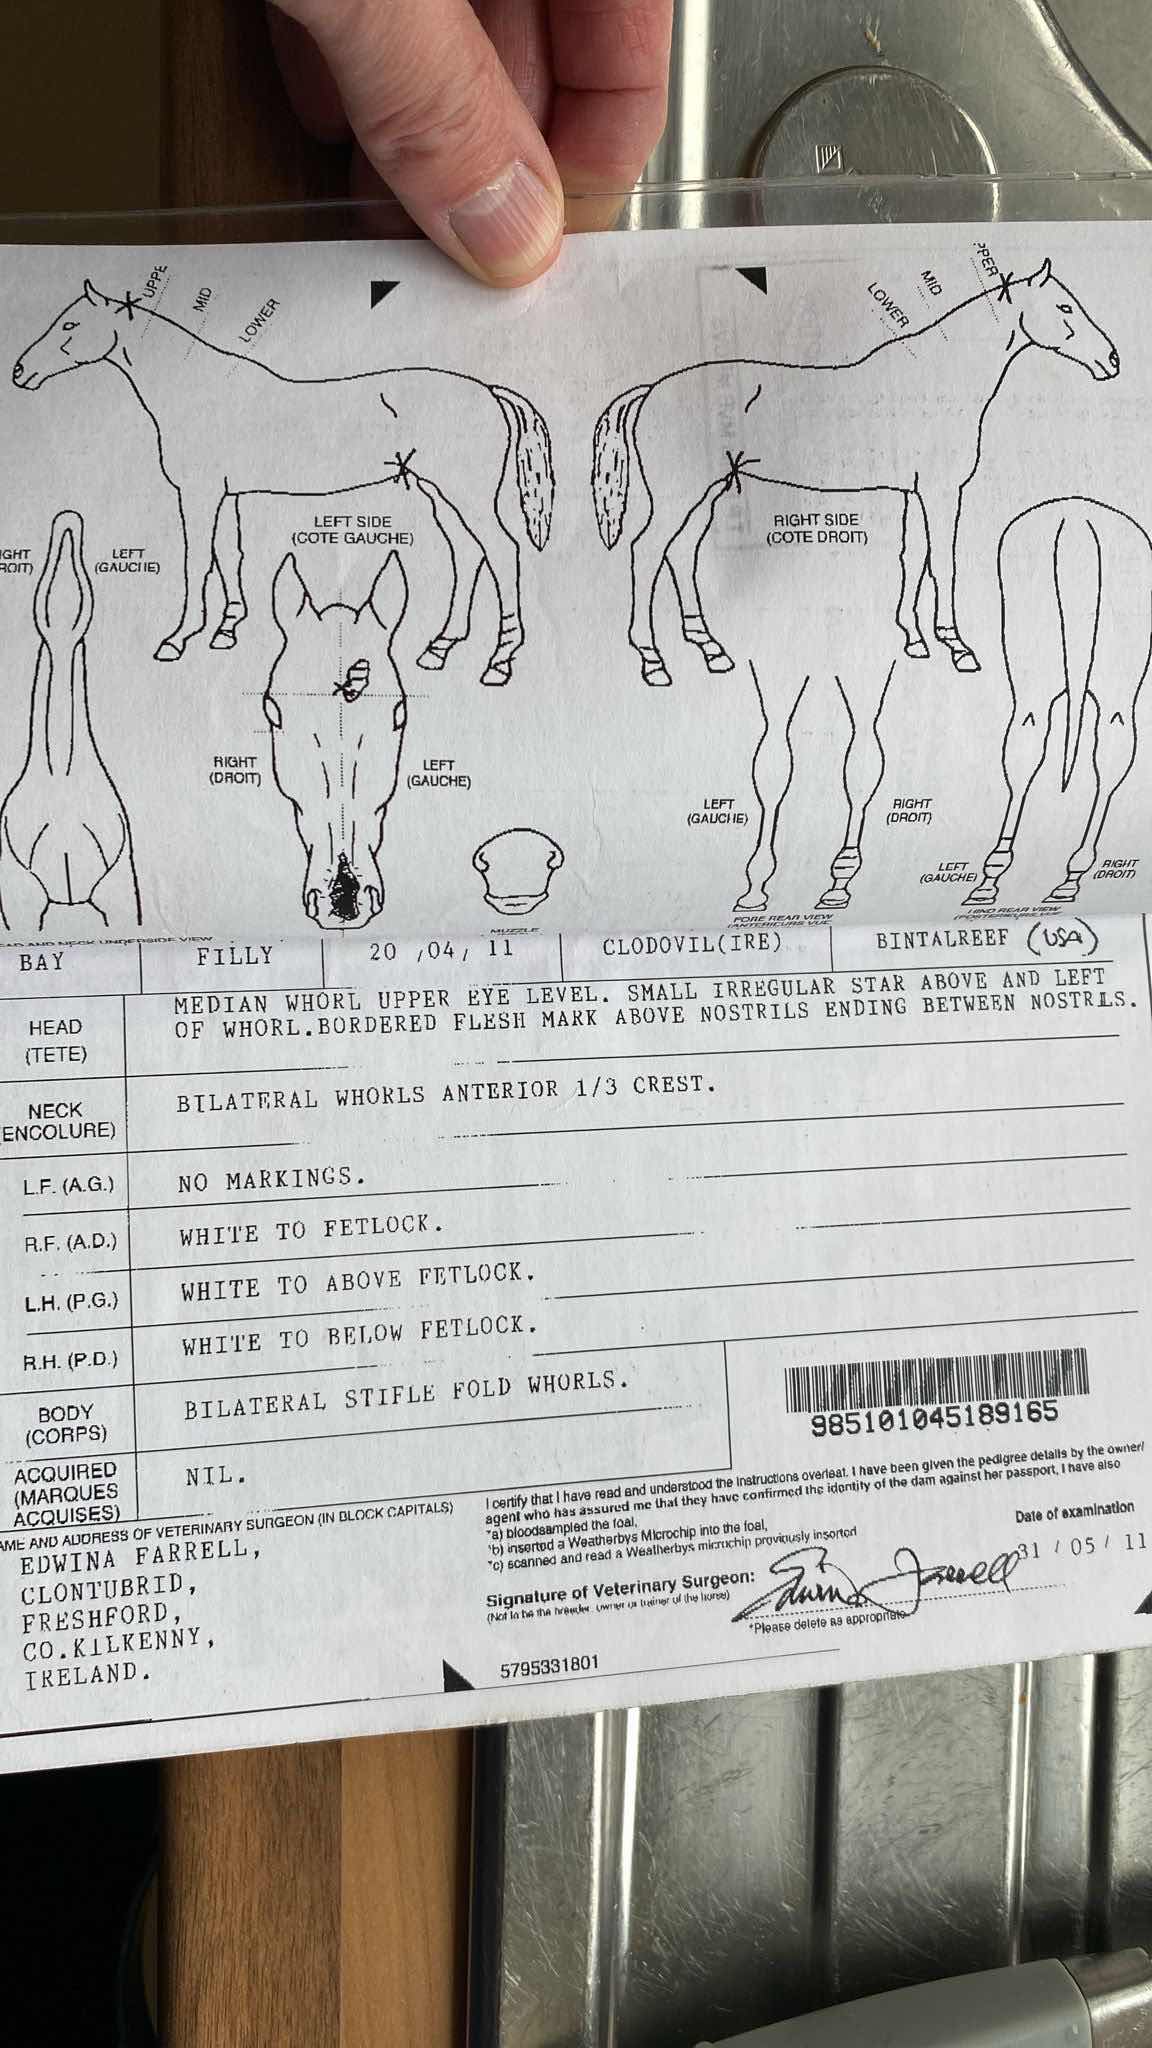 UPPE
MID
LOWER
PPER
MID
LOWER
LEFT SIDE
(COTE GAUCHE)
RIGHT SIDE
(COTE DROIT)
IGHT
ROIT)
LEFT
(GAUCHE)
RIGHT
(DROIT)
LEFT
(GAUCHE)
LEFT
(GAUCHE)
RIGHT
(DROIT)
LEFT
(GAUCHE)
RIGHT
(DROIT)
EAD AND NECK UNDERSIDE VIEW
MUZZLE
FORE REAR VIEW
(ANTERIEURS VUE
HIND REAR VIEW
(POSTERIEURS VUE
BAY FILLY 20 /04/ 11 CLODOVIL(IRE) BINTALREEF (USA)
HEAD
(TETE)
MEDIAN WHORL UPPER EYE LEVEL. SMALL IRREGULAR STAR ABOVE AND LEFT
OF WHORL.BORDERED FLESH MARK ABOVE NOSTRILS ENDING BETWEEN NOSTRILS.
NECK
(ENCOLURE)
BILATERAL WHORLS ANTERIOR 1/3 CREST.
L.F. (A.G.) NO MARKINGS.
R.F. (A.D.) WHITE TO FETLOCK.
L.H. (P.G.) WHITE TO ABOVE FETLOCK.
R.H. (P.D.) WHITE TO BELOW FETLOCK.
BODY
(CORPS)
BILATERAL STIFLE FOLD WHORLS.
985101045189165
ACQUIRED
(MARQUES
ACQUISES)
NIL.
I certify that I have read and understood the instructions overleaf. I have been given the pedigree details by the owner/
agent who has assured me that they have confirmed the identity of the dam against her passport, I have also
*a) bloodsampled the foal,
*b) inserted a Weatherbys Microchip into the foal,
*c) scanned and read a Weatherbys microchip previously inserted
Date of examination
31 / 05 / 11
Signature of Veterinary Surgeon: Edwina Farrell
(Not to be the breeder, owner or trainer of the horse)
*Please delete as appropriate
AME AND ADDRESS OF VETERINARY SURGEON (IN BLOCK CAPITALS)
EDWINA FARRELL,
CLONTUBRID,
FRESHFORD,
CO.KILKENNY,
IRELAND.
5795331801